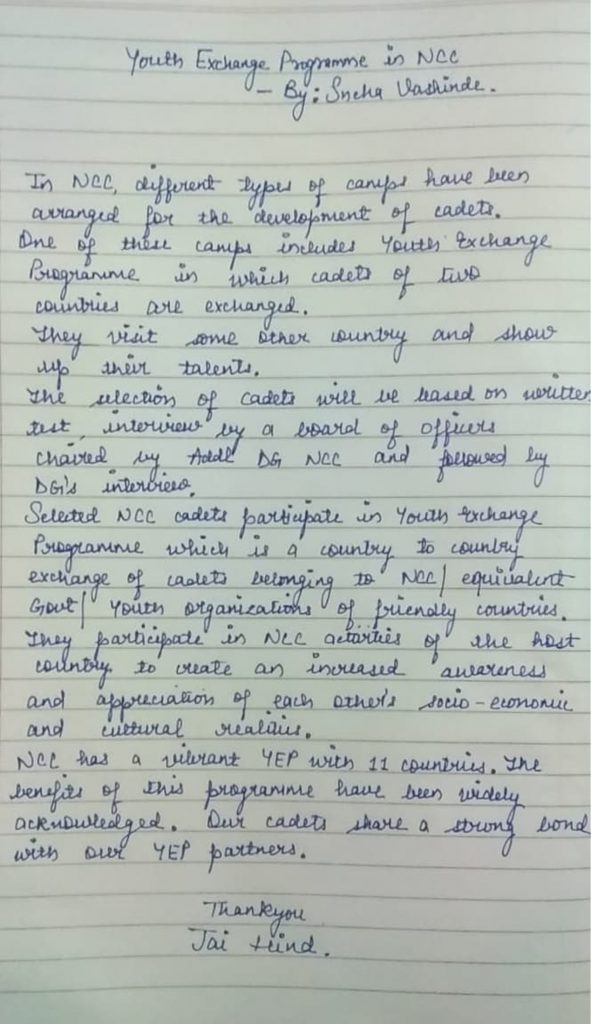 Youth Exchange Programme in NCC
- By: Sneha Vashinde.
In NCC, different types of camps have been
arranged for the development of cadets.
One of these camps includes Youth Exchange
Programme in which cadets of two
countries are exchanged.
They visit some other country and show
up their talents.
The selection of cadets will be based on written
test, interview by a board of officers
chaired by Addl DG NCC and followed by
DG's interview.
Selected NCC cadets participate in Youth Exchange
Programme which is a country to country
exchange of cadets belonging to NCC/ equivalent
Govt/ Youth organizations of friendly countries.
They participate in NCC activities of the host
country to create an increased awareness
and appreciation of each other's socio-economic
and cultural realties.
NCC has a vibrant YEP with 11 countries. The
benefits of this programme have been widely
acknowledged. Our cadets share a strong bond
with our YEP partners.
Thankyou
Jai Hind.